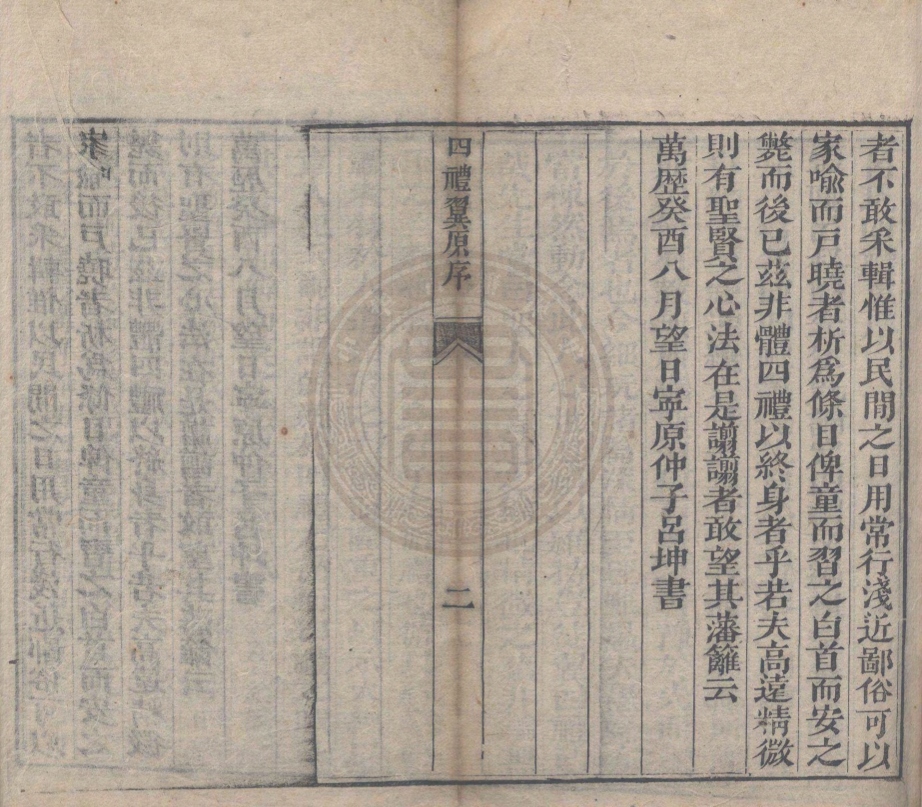 者不敢采輯惟以民閒之日用常行淺近鄙俗可以
家喻而戸曉者析為條目俾童而習之白首而安之
斃而後已茲非體四禮以終身者乎若夫高遠精微
則有聖賢之心法在是謭謭者敢望其藩籬云
萬歴癸酉八月望日寧原仲子呂坤書
四禮翼原序
二